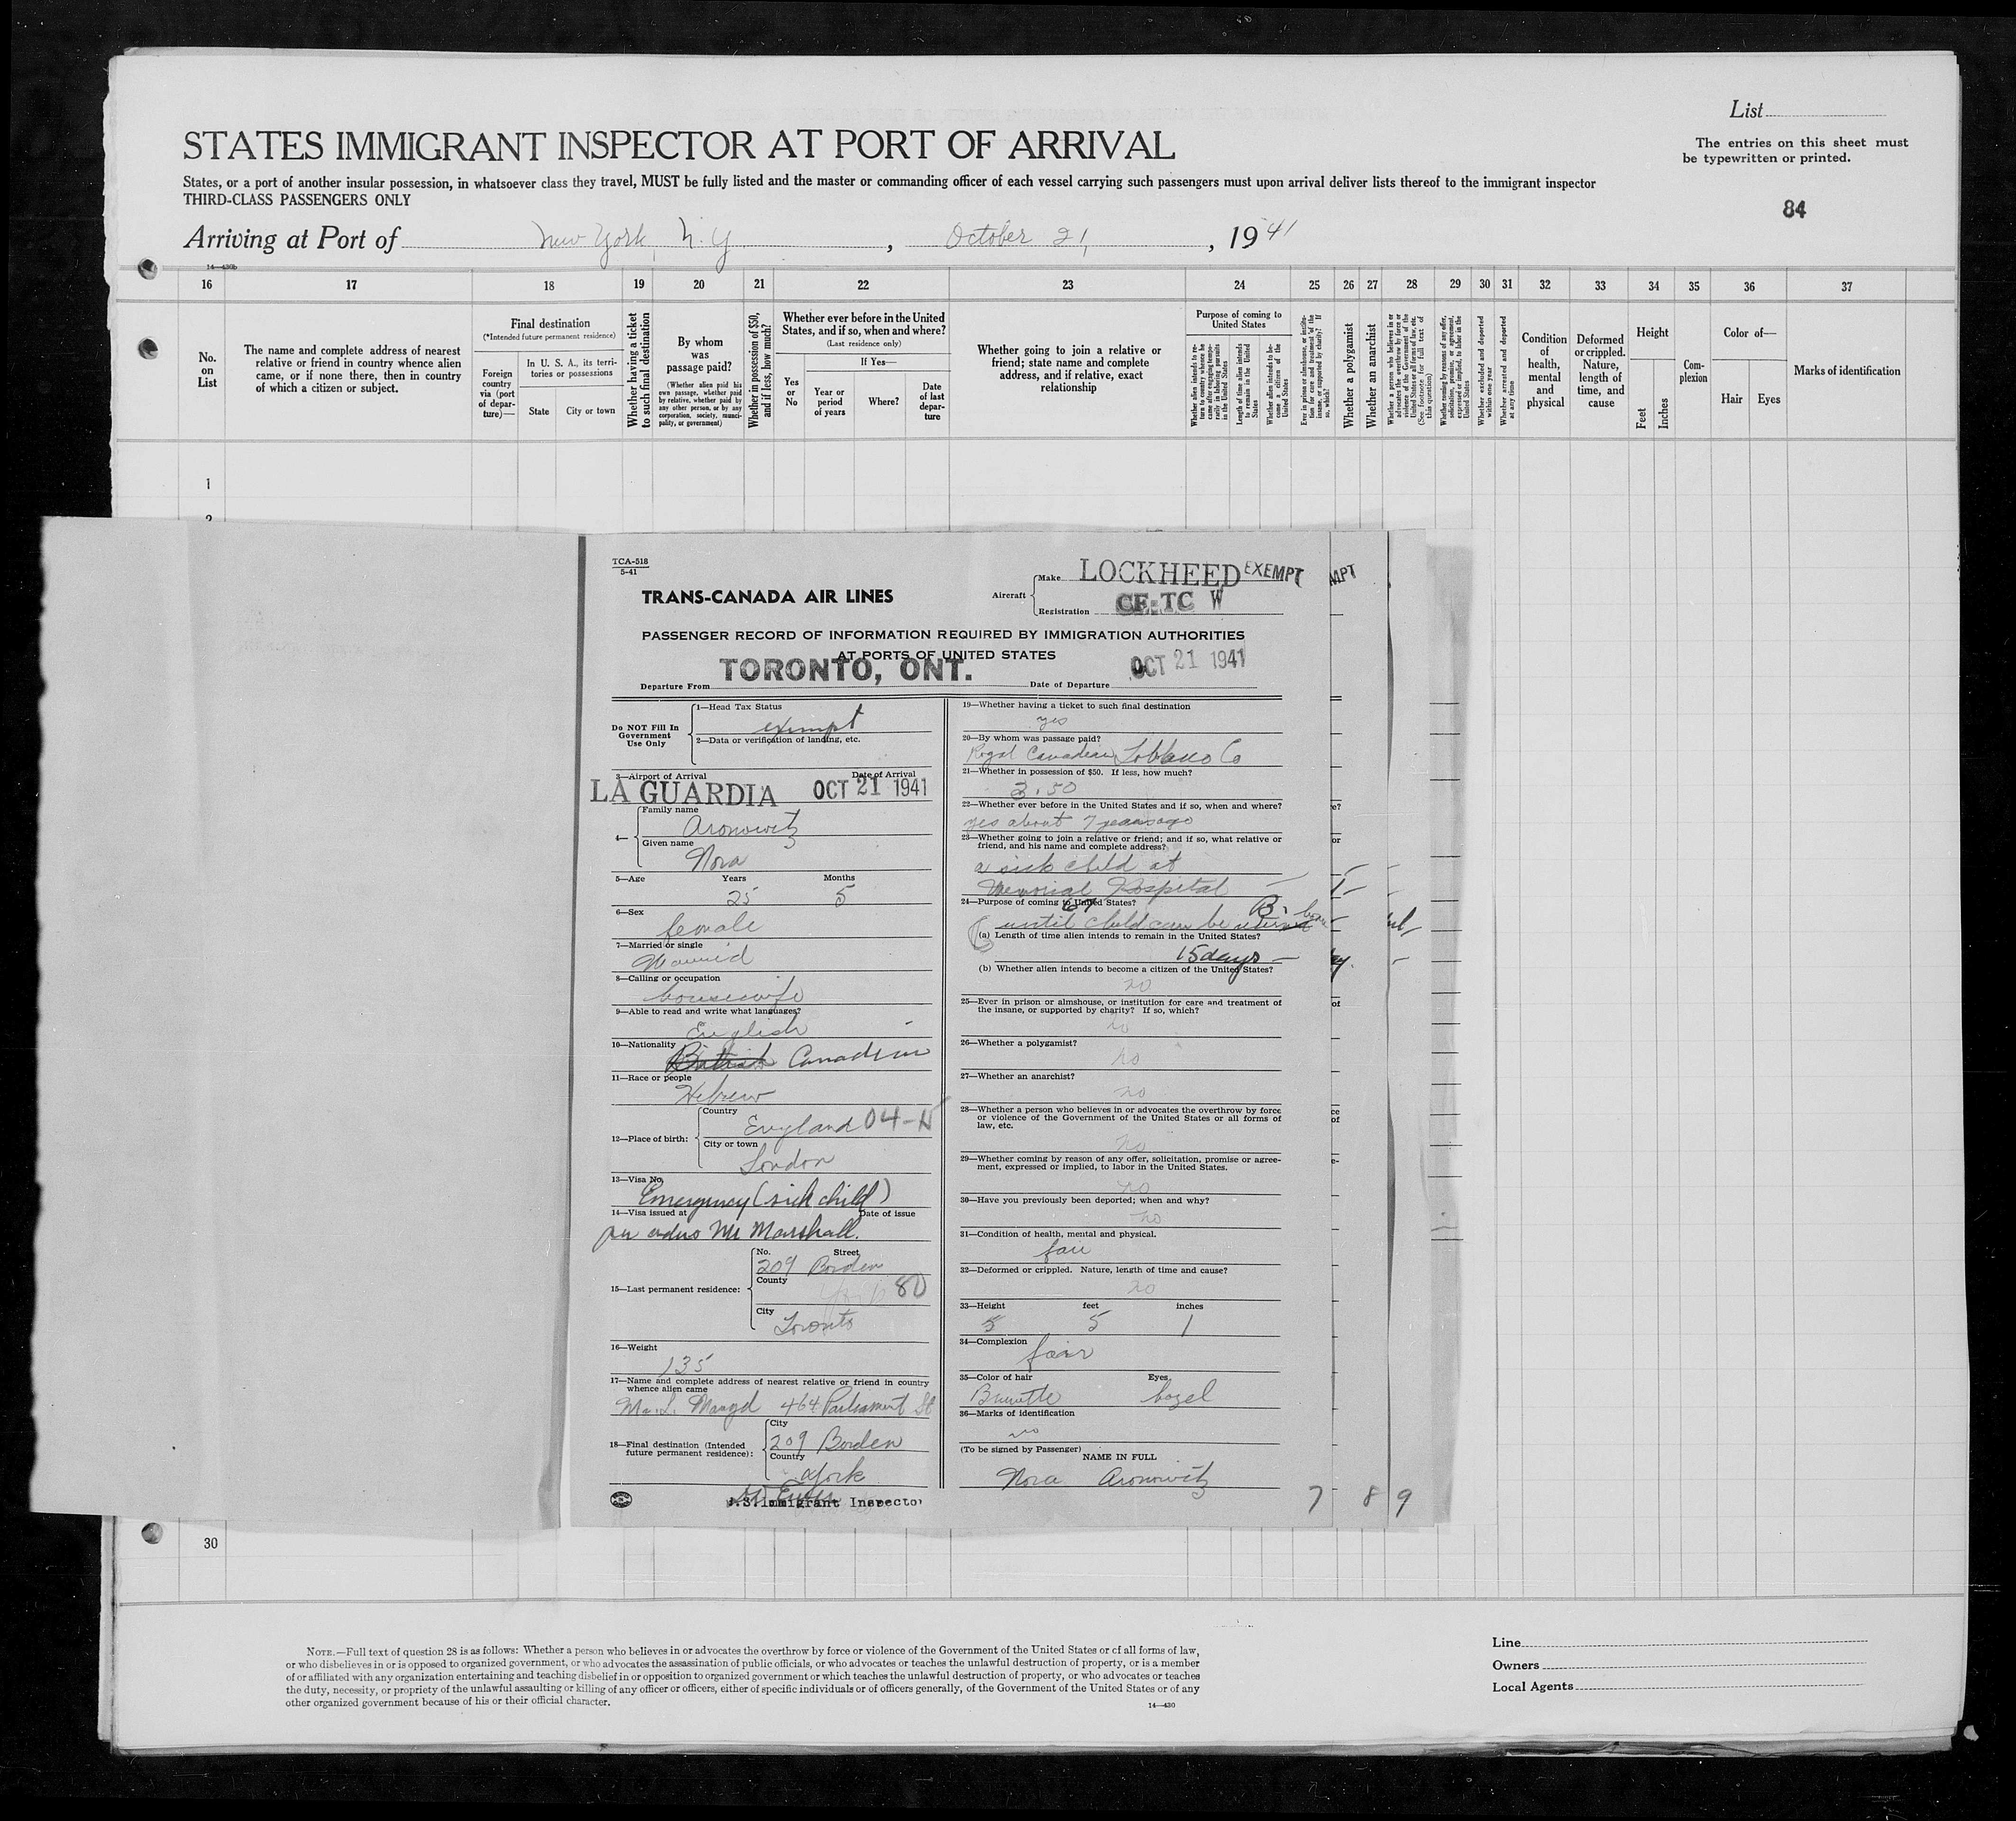 List
STATES IMMIGRANT INSPECTOR AT PORT OF ARRIVAL
The entries on this sheet must
be typewritten or printed.
States, or a port of another insular possession, in whatsoever class they travel, MUST be fully listed and the master or commanding officer of each vessel carrying such passengers must upon arrival deliver lists thereof to the immigrant inspector
THIRD-CLASS PASSENGERS ONLY
84
Arriving at Port of New York, N.Y , October 21, , 1941
14—430b
16 17 18 19 20 21 22 23 24 25 26 27 28 29 30 31 32 33 34 35 36 37
No.
on
List
The name and complete address of nearest
relative or friend in country whence alien
came, or if none there, then in country
of which a citizen or subject.
Final destination
(*Intended future permanent residence)
Foreign
country
via (port
of depar-
ture)—
In U. S. A., its terri-
tories or possessions
State City or town
Whether having a ticket
to such final destination
By whom
was
passage paid?
(Whether alien paid his
own passage, whether paid
by relative, whether paid by
any other person, or by any
corporation, society, munici-
pality, or government)
Whether in possession of $50,
and if less, how much?
Whether ever before in the United
States, and if so, when and where?
(Last residence only)
If Yes—
Yes
or
No
Year or
period
of years
Where?
Date
of last
depar-
ture
Whether going to join a relative or
friend; state name and complete
address, and if relative, exact
relationship
Purpose of coming to
United States
Whether alien intends to re-
turn to country whence he
came after engaging tempo-
rarily in laboring pursuits
in the United States
Length of time alien intends
to remain in the United
States
Whether alien intends to be-
come a citizen of the
United States
Ever in prison or almshouse, or institu-
tion for care and treatment of the
insane, or supported by charity? If
so, which?
Whether a polygamist
Whether an anarchist
Whether a person who believes in or
advocates the overthrow by force or
violence of the Government of the
United States or all forms of law, etc.
(See footnote for full text of
this question)
Whether coming by reasons of any offer,
solicitation, promise, or agreement,
express or implied, to labor in the
United States
Whether excluded and deported
within one year
Whether arrested and deported
at any time
Condition
of
health,
mental
and
physical
Deformed
or crippled.
Nature,
length of
time, and
cause
Height
Feet
Inches
Com-
plexion
Color of—
Hair Eyes
Marks of identification
1
2
TCA-518
5-41
TRANS-CANADA AIR LINES
Aircraft
Make LOCKHEED EXEMPT
Registration CF-TC W
MPT
PASSENGER RECORD OF INFORMATION REQUIRED BY IMMIGRATION AUTHORITIES
AT PORTS OF UNITED STATES
Departure From TORONTO, ONT.
Date of Departure OCT 21 1941
Do NOT Fill In
Government
Use Only
1—Head Tax Status
exempt
2—Data or verification of landing, etc.
3—Airport of Arrival Date of Arrival
LA GUARDIA OCT 21 1941
4— Family name
Aronowitz
Given name
Nora
5—Age Years Months
25 5
6—Sex
female
7—Married or single
Married
8—Calling or occupation
housewife
9—Able to read and write what languages?
English
10—Nationality
British Canadian
11—Race or people
Hebrew
12—Place of birth:
Country
England 04-
City or town
London
13—Visa No.
Emergency (sick child)
14—Visa issued at Date of issue
per Mr Marshall.
15—Last permanent residence:
No. Street
209 Borden
County
York 80
City
Toronto
16—Weight
135
17—Name and complete address of nearest relative or friend in country
whence alien came
464 Parliament St
18—Final destination (Intended
future permanent residence):
City
209 Borden
Country
York
U.S. Immigrant Inspector
19—Whether having a ticket to such final destination
yes
20—By whom was passage paid?
Royal Canadian Co
21—Whether in possession of $50. If less, how much?
3.50
22—Whether ever before in the United States and if so, when and where?
yes about 7 years ago
23—Whether going to join a relative or friend; and if so, what relative or
friend, and his name and complete address?
a sick child at
Memorial Hospital
24—Purpose of coming to United States?
until child can be
(a) Length of time alien intends to remain in the United States?
15 days —
(b) Whether alien intends to become a citizen of the United States?
no
25—Ever in prison or almshouse, or institution for care and treatment of
the insane, or supported by charity? If so, which?
no
26—Whether a polygamist?
no
27—Whether an anarchist?
no
28—Whether a person who believes in or advocates the overthrow by force
or violence of the Government of the United States or all forms of
law, etc.
no
29—Whether coming by reason of any offer, solicitation, promise or agree-
ment, expressed or implied, to labor in the United States.
no
30—Have you previously been deported; when and why?
no
31—Condition of health, mental and physical.
fair
32—Deformed or crippled. Nature, length of time and cause?
no
33—Height feet inches
5 5 1
34—Complexion
fair
35—Color of hair Eyes
Brunette hazel
36—Marks of identification
no
(To be signed by Passenger)
NAME IN FULL
Nora Aronowitz
7 8 9
30
NOTE.—Full text of question 28 is as follows: Whether a person who believes in or advocates the overthrow by force or violence of the Government of the United States or of all forms of law,
or who disbelieves in or is opposed to organized government, or who advocates the assassination of public officials, or who advocates or teaches the unlawful destruction of property, or is a member
of or affiliated with any organization entertaining and teaching disbelief in or opposition to organized government or which teaches the unlawful destruction of property, or who advocates or teaches
the duty, necessity, or propriety of the unlawful assaulting or killing of any officer or officers, either of specific individuals or of officers generally, of the Government of the United States or of any
other organized government because of his or their official character.
14—430
Line
Owners
Local Agents